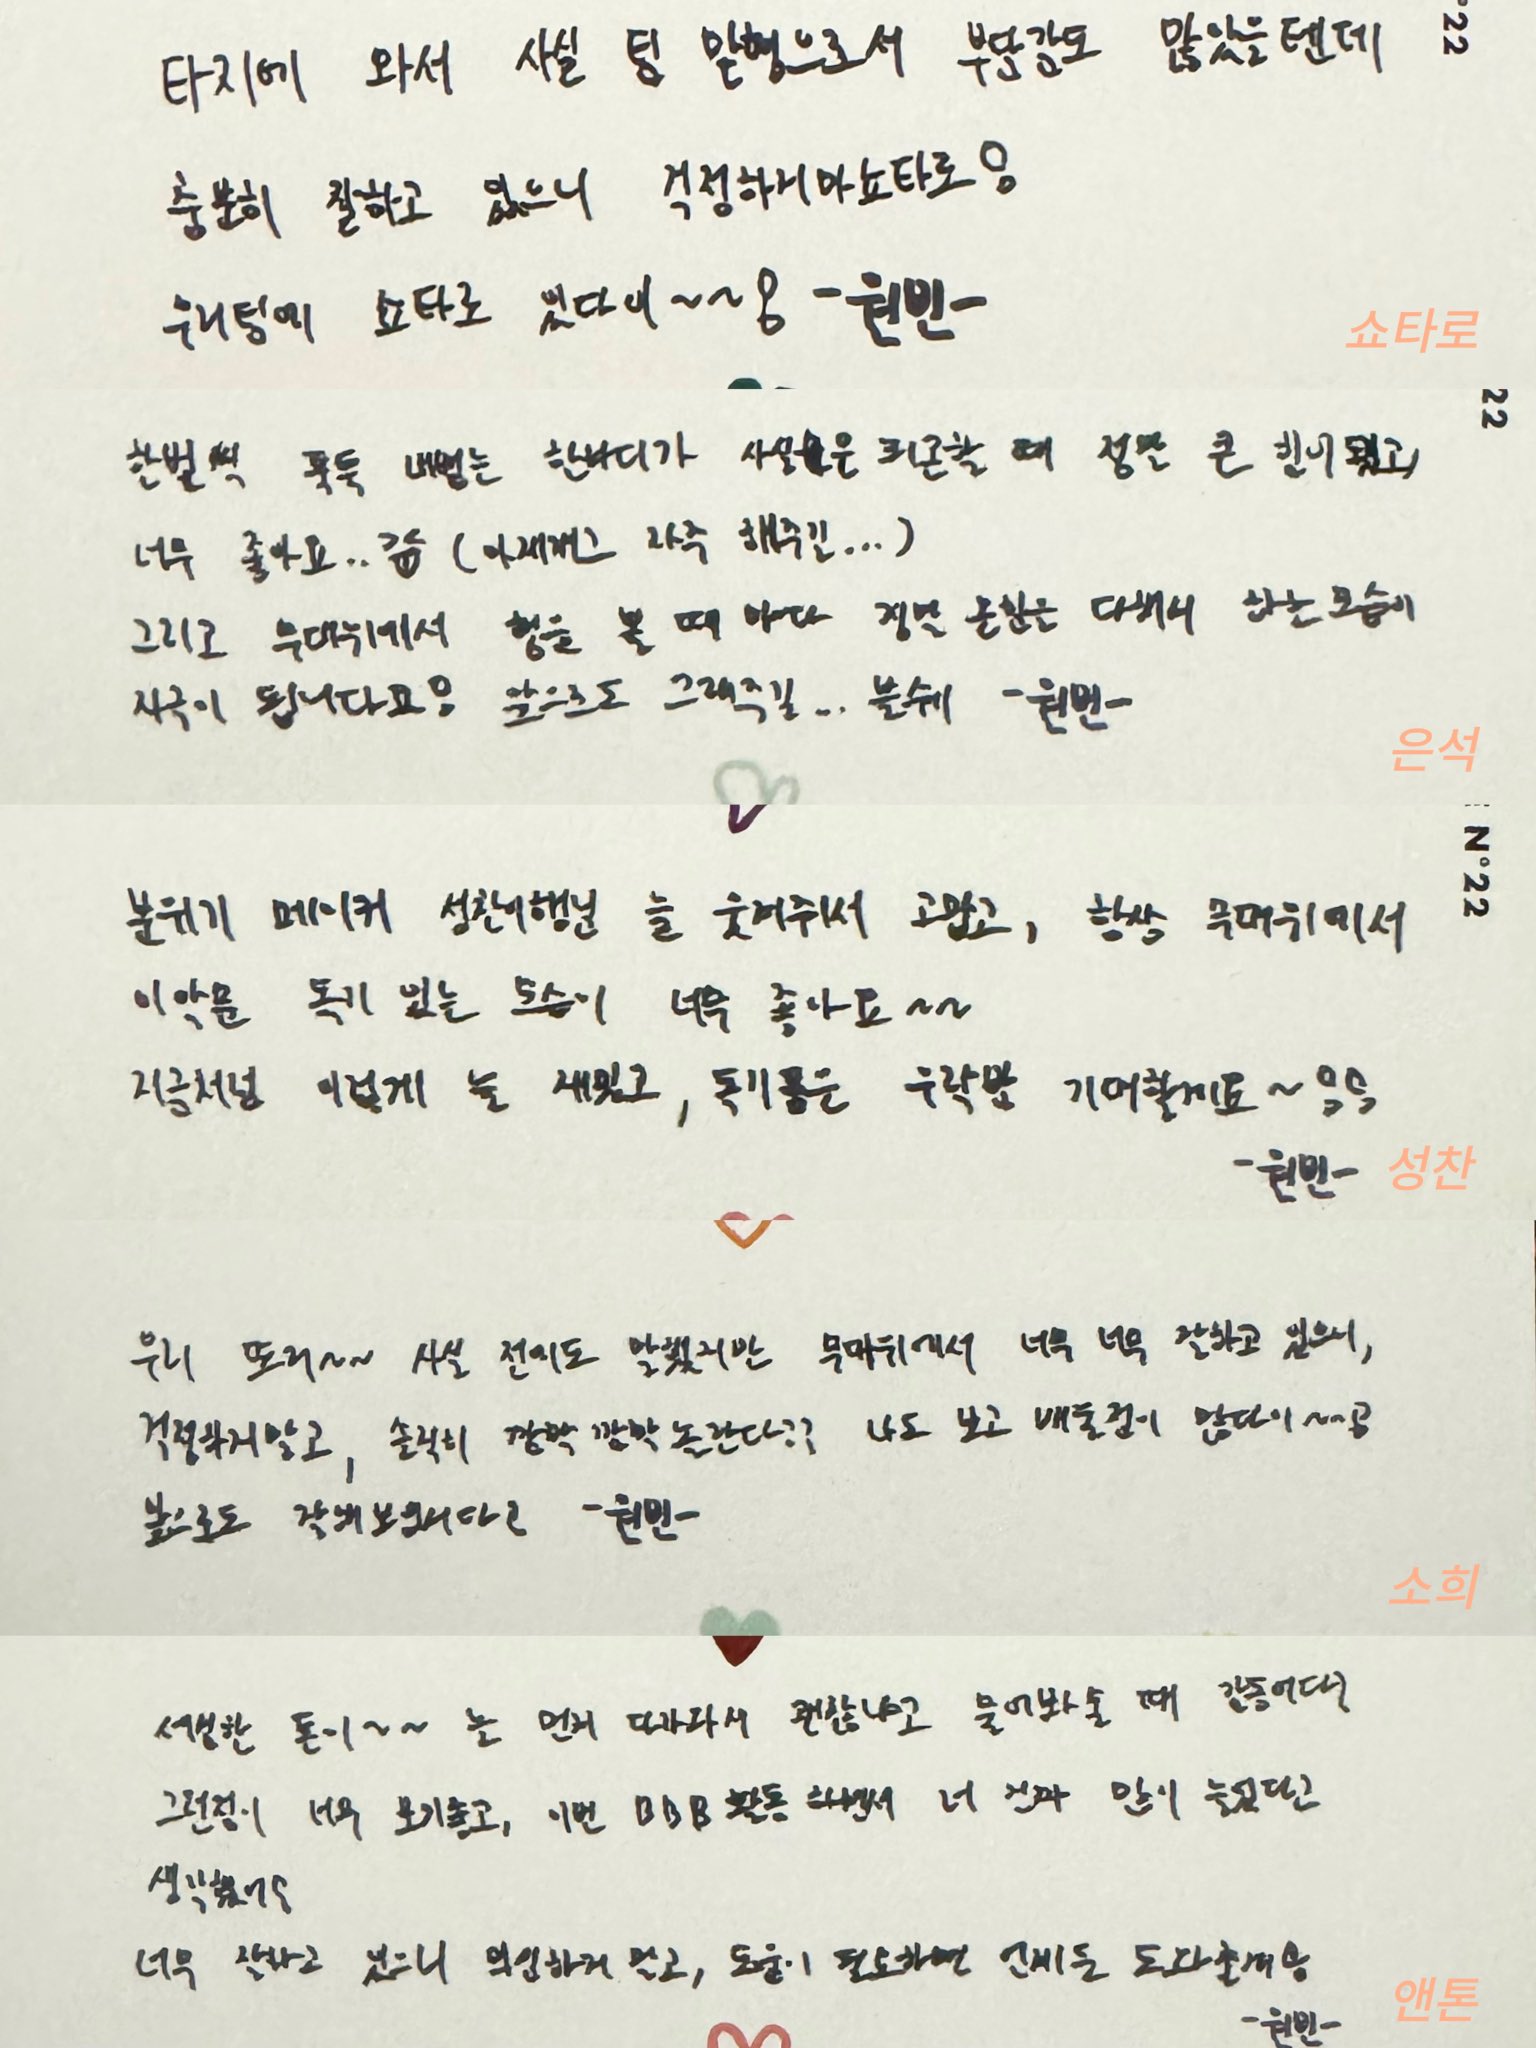 °22
타지에 와서 사실 팀 맏형으로서 부담감도 많았을텐데
충분히 잘하고 있으니 걱정하지마쇼타로용
우리팀에 쇼타로 있다이~~용 -원빈-
쇼타로
22
한번씩 툭툭 내뱉는 한마디가 사실은 피곤할 때 정말 큰 힘이 됐고,
너무 좋아요.. (아재개그 자주 해주긴...)
그리고 무대위에서 형을 볼 때 마다 정말 본분은 다해서 하는 모습이
자극이 됩니다요용 앞으로도 그래주길... 불수께 -원빈-
은석
N°22
분위기 메이커 성찬이행님 늘 웃겨줘서 고맙고, 항상 무대위에서
이악문 독기 있는 모습이 너무 좋아요~~
지금처럼 이렇게 늘 재밌고, 독기품은 우락밤 기대할게요~용용
-원빈-
성찬
우리 또리~~ 사실 전에도 말했지만 무대위에서 너무 너무 잘하고 있으니,
걱정하지말고, 솔직히 깜짝깜짝 놀란다?? 나도 보고 배울점이 많다이~~공
앞으로도 잘해보입시다고 -원빈-
소희
서생한 톤이~~ 늘 먼저 다가와서 괜찮냐고 물어봐줄 때 감동이다?
그런점이 너무 보기좋고, 이번 BBB 활동 하면서 너 진짜 많이 늘었다고
생각했어용
너무 잘하고 있으니 의심하지 말고, 도움이 필요하면 언제든 도와줄게용
-원빈-
앤톤